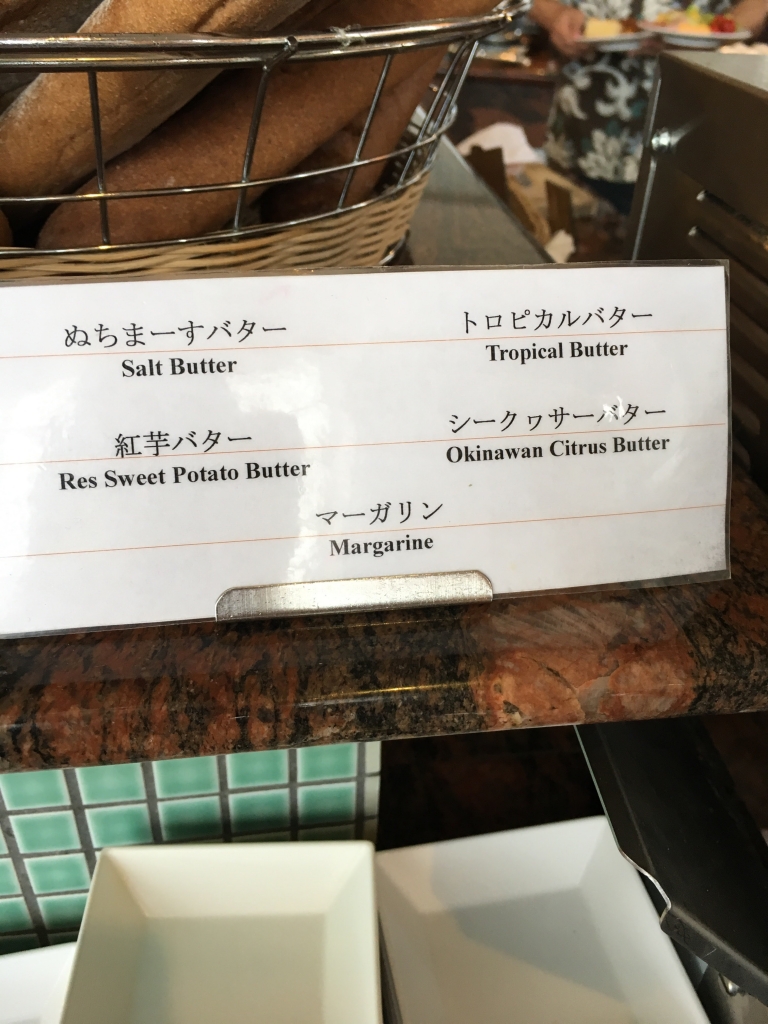 ぬちまーすバター
Salt Butter
トロピカルバター
Tropical Butter
紅芋バター
Res Sweet Potato Butter
シークヮサーバター
Okinawan Citrus Butter
マーガリン
Margarine